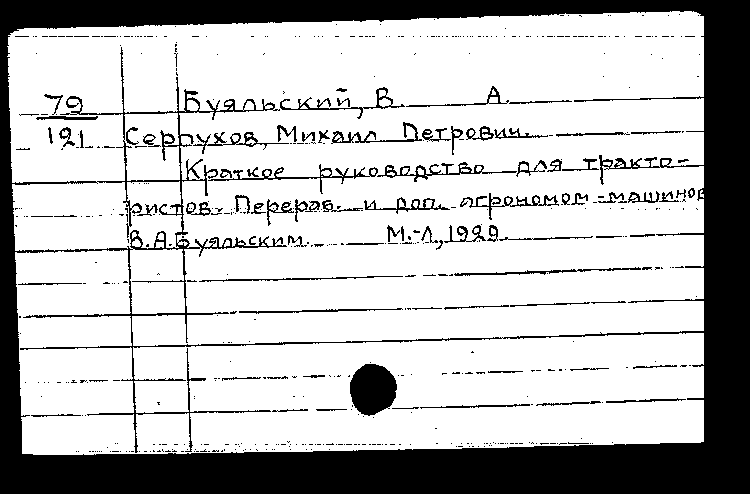 79 Буяльский, В. А.
121 Серпухов, Михаил Петрович.
Краткое руководство для тракто-
ристов. Перераб. и доп. агрономом-машинов
В.А.Буяльским. М.-Л., 1929.